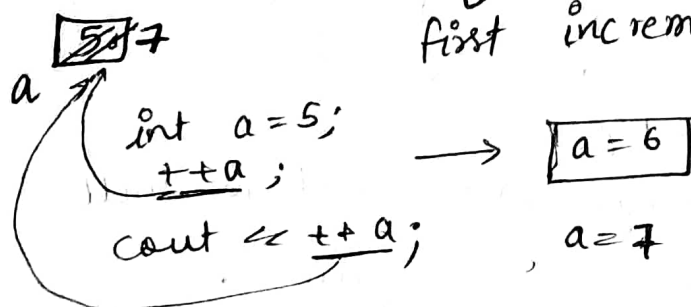 first increm
a 7
int a = 5;
++a ; → a = 6
cout << ++a ; , a = 7